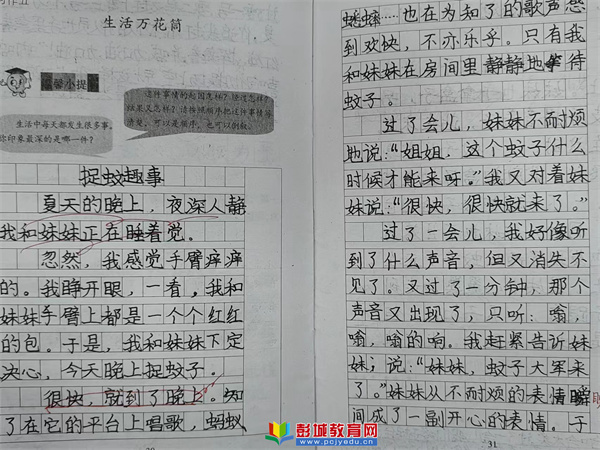 生活万花筒
小提
这件事情的起因怎样？经过怎样？
结果又怎样？请按照顺序把这件事情写
清楚，可以是顺序，也可以倒叙。
生活中每天都发生很多事，
你印象最深的是哪一件？
捉蚊趣事
夏天的晚上，夜深人静
我和妹妹正在睡着觉。
忽然，我感觉手臂痒痒
的。我睁开眼，一看，我和
妹妹手臂上都是一个个红红
的包。于是，我和妹妹下定
决心，今天晚上捉蚊子。
很快，就到了晚上。知
了在它的平台上唱歌，蚂蚁
蟋蟀……也在为知了的歌声感
到欢快，不亦乐乎。只有我
和妹妹在房间里静静地等待
蚊子。
过了会儿，妹妹不耐烦
地说：“姐姐，这个蚊子什么
时候才能来呀。”我又对着妹
妹说：“很快，很快就来了。”
过了一会儿，我好像听
到了什么声音，但又消失不
见了。又过了一分钟，那个
声音又出现了，只听：嗡，
嗡，嗡的响。我赶紧告诉妹
妹；说：“妹妹，蚊子大军来
了。”妹妹从不耐烦的表情瞬
间成了一副开心的表情。于
31
彭城教育网
www.pcjyedu.cn